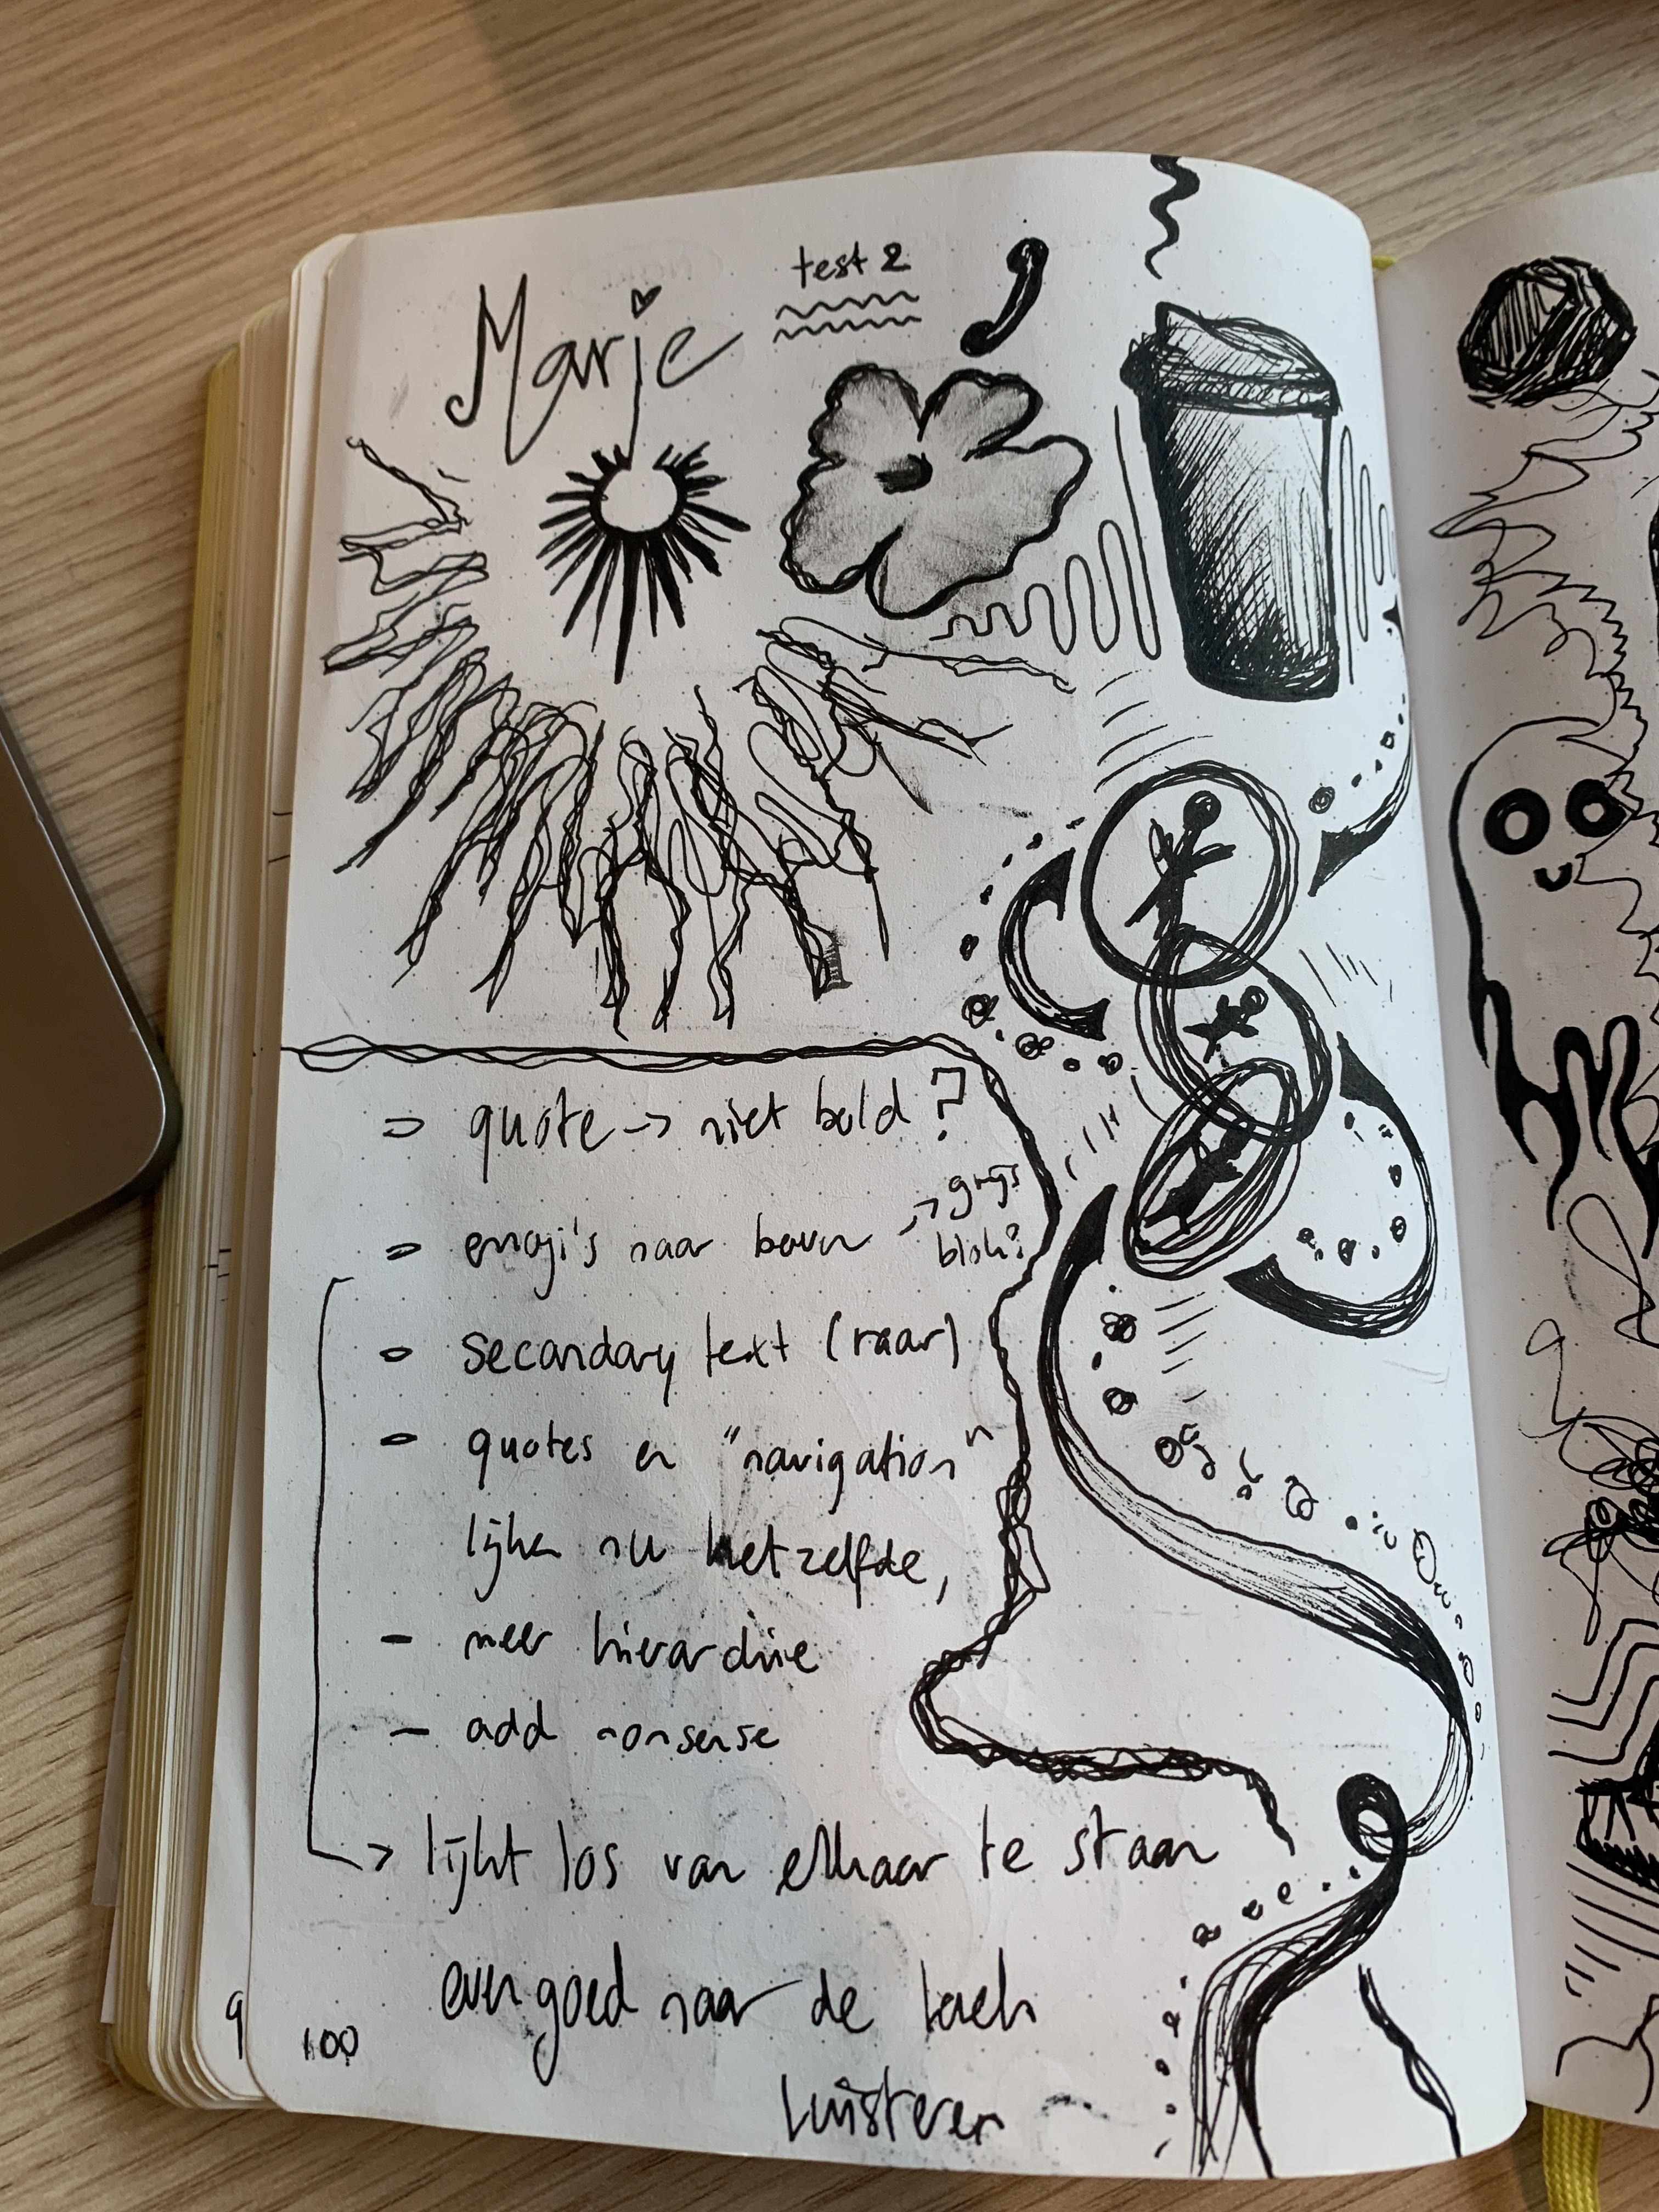 Marje
test 2
quote -> niet bold?
emoji's naar boven -> grijs
blok?
secondary text (raar)
quotes en "navigation"
lijken nu hetzelfde,
- meer hierarchie
- add nonsense
-> lijkt los van elkaar te staan
even goed naar de tach
luisteren
9
100